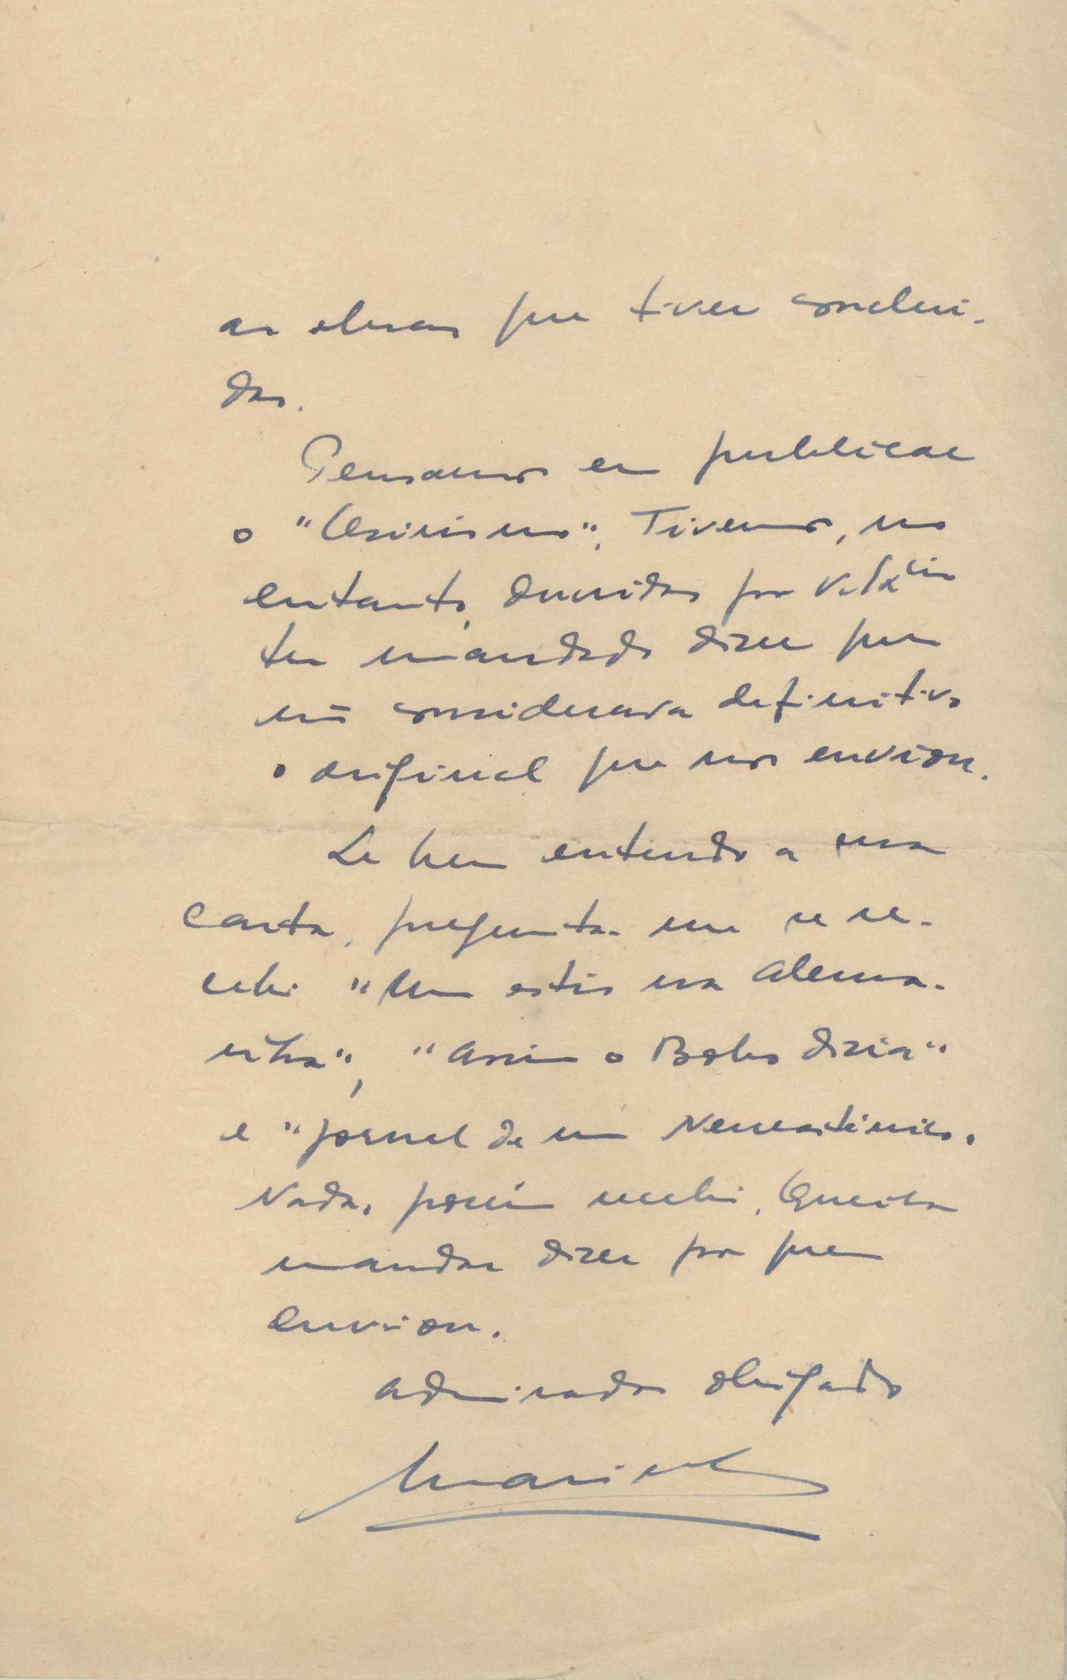 as obras que tiver conclui-
das.
Pensamos em publicar
o "Usinismo". Tivemos, no
entanto, duvidas por V. Ex.cia
ter mandado dizer que
não considerava definitivo
o original que nos enviou.
Se bem entendo a sua
carta, pregunta-me se re-
cebi "Um estio na Alema-
nha", "Assim o Bobo dizia"
e "Jornal de um Neurasténico.
Nada, porém recebi. Queira
mandar dizer por quem
enviou.
admirador obrigado